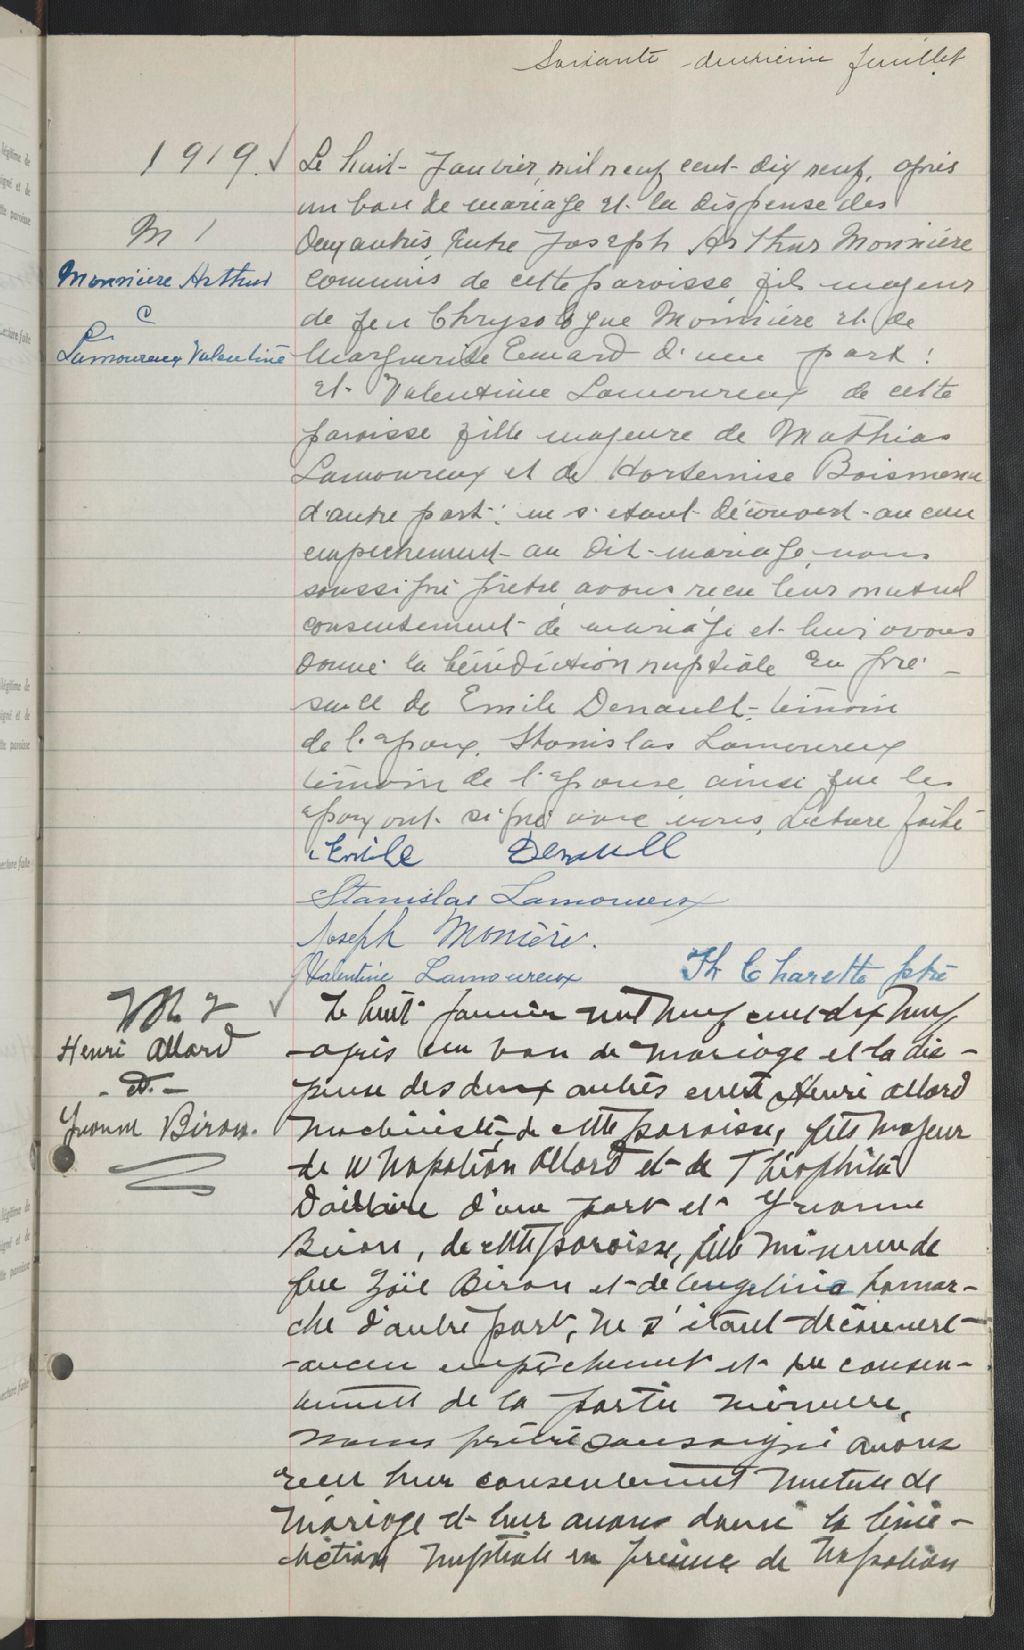 Soixante deuxième feuillet
1919.
M 1
Monniere Arthur
&
Lamoureux Valentine
Le huit Janvier, mil neuf cent dix neuf, après
un ban de mariage et la dispense des
deux autres, entre Joseph Arthur Monnière
commis de cette paroisse fils majeur
de feu Chrysologue Monnière et de
Marguerite Emard d'une part;
et Valentine Lamoureux de cette
paroisse fille majeure de Mathias
Lamoureux et de Hortemise Boismenu
d'autre part; ne s'étant découvert aucun
empechement au dit mariage nous
soussigné prêtre avons reçu leur mutuel
consentement de mariage et leur avons
donné la bénédiction nuptiale en pré-
sence de Emile Denault, témoin
de l'époux, Stanislas Lamoureux
témoin de l'épouse ainsi que les
époux ont signé avec nous. Lecture faite
Emile Denault
Stanislas Lamoureux
Joseph Monière.
Valentine Lamoureux Th Charette ptre
M 2
Henri Allard
- et -
Yvonne Biron.
Le huit Janvier mil neuf cent dix neuf
après un ban de mariage et la dis-
pense des deux autres entre Henri Allard
machiniste de cette paroisse, fils majeur
de Napoléon Allard et de Théophile
Dallaire d'une part et Yvonne
Biron, de cette paroisse, fille mineure de
feu Zoël Biron et de Angelina Lamar-
che d'autre part, ne s'étant découvert
aucun empêchement et du consen-
tement de la partie mineure,
nous prêtre soussigné avons
reçu leur consentement mutuel de
mariage et leur avons donné la béné-
diction nuptiale en présence de Napoléon